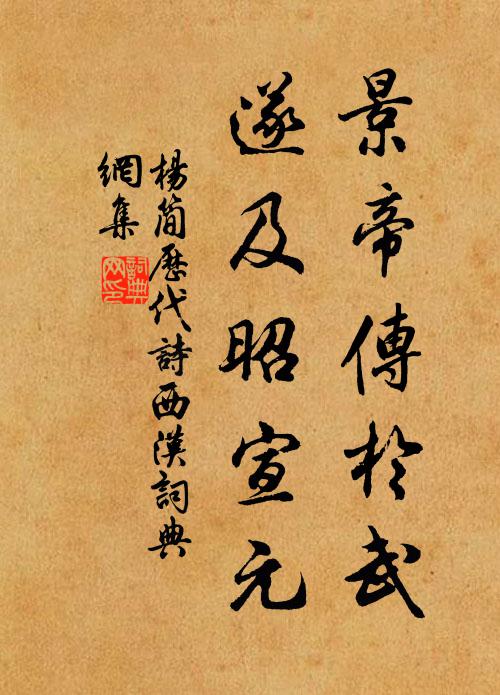 景帝傳於武
遂及昭宣元
楊簡歷代詩西漢詞典
網集
詞典
网印